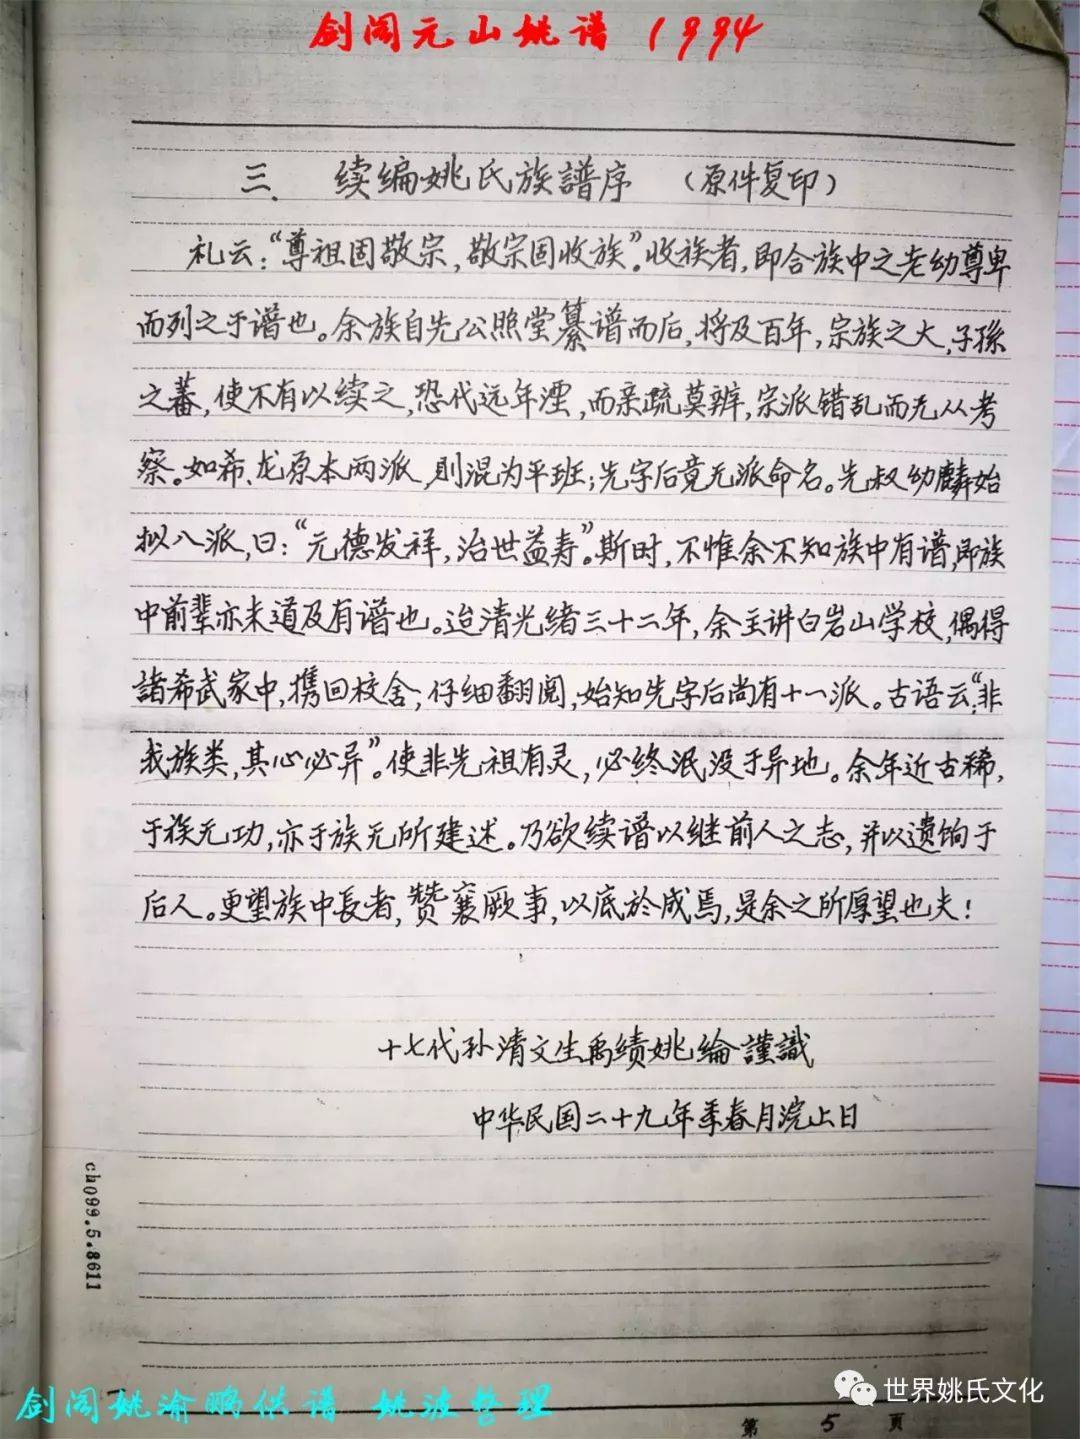 剑阁元山姚谱 1994
三、续编姚氏族譜序 （原件复印）
礼云：“尊祖固敬宗，敬宗固收族”。收族者，即合族中之老幼尊卑
而列之于谱也。余族自先公照堂纂谱而后，将及百年，宗族之大，子孫
之蕃，使不有以续之，恐代远年湮，而亲疏莫辨，宗派错乱而无从考
察。如希、龙原本两派，則混为平班；先字后竟无派命名。先叔幼麟始
拟八派，曰：“元德发祥，治世益寿”。斯时，不惟余不知族中有谱，即族
中前辈亦未道及有谱也。迨清光绪三十二年，余主讲白岩山学校，偶得
諸希武家中，携回校舍，仔细翻阅，始知先字后尚有十一派。古语云：“非
我族类，其心必异”。使非先祖有灵，必终泯没于异地。余年近古稀，
于族无功，亦于族无所建述。乃欲续谱以继前人之志，并以遗饷于
后人。更望族中長者，赞襄厥事，以底於成焉，是余之所厚望也夫！
十七代孙清文生禹绩姚綸謹識
中华民国二十九年季春月浣上日
ch099.5.8611
世界姚氏文化
剑阁姚渝鹏供谱 姚波整理
第 5 頁